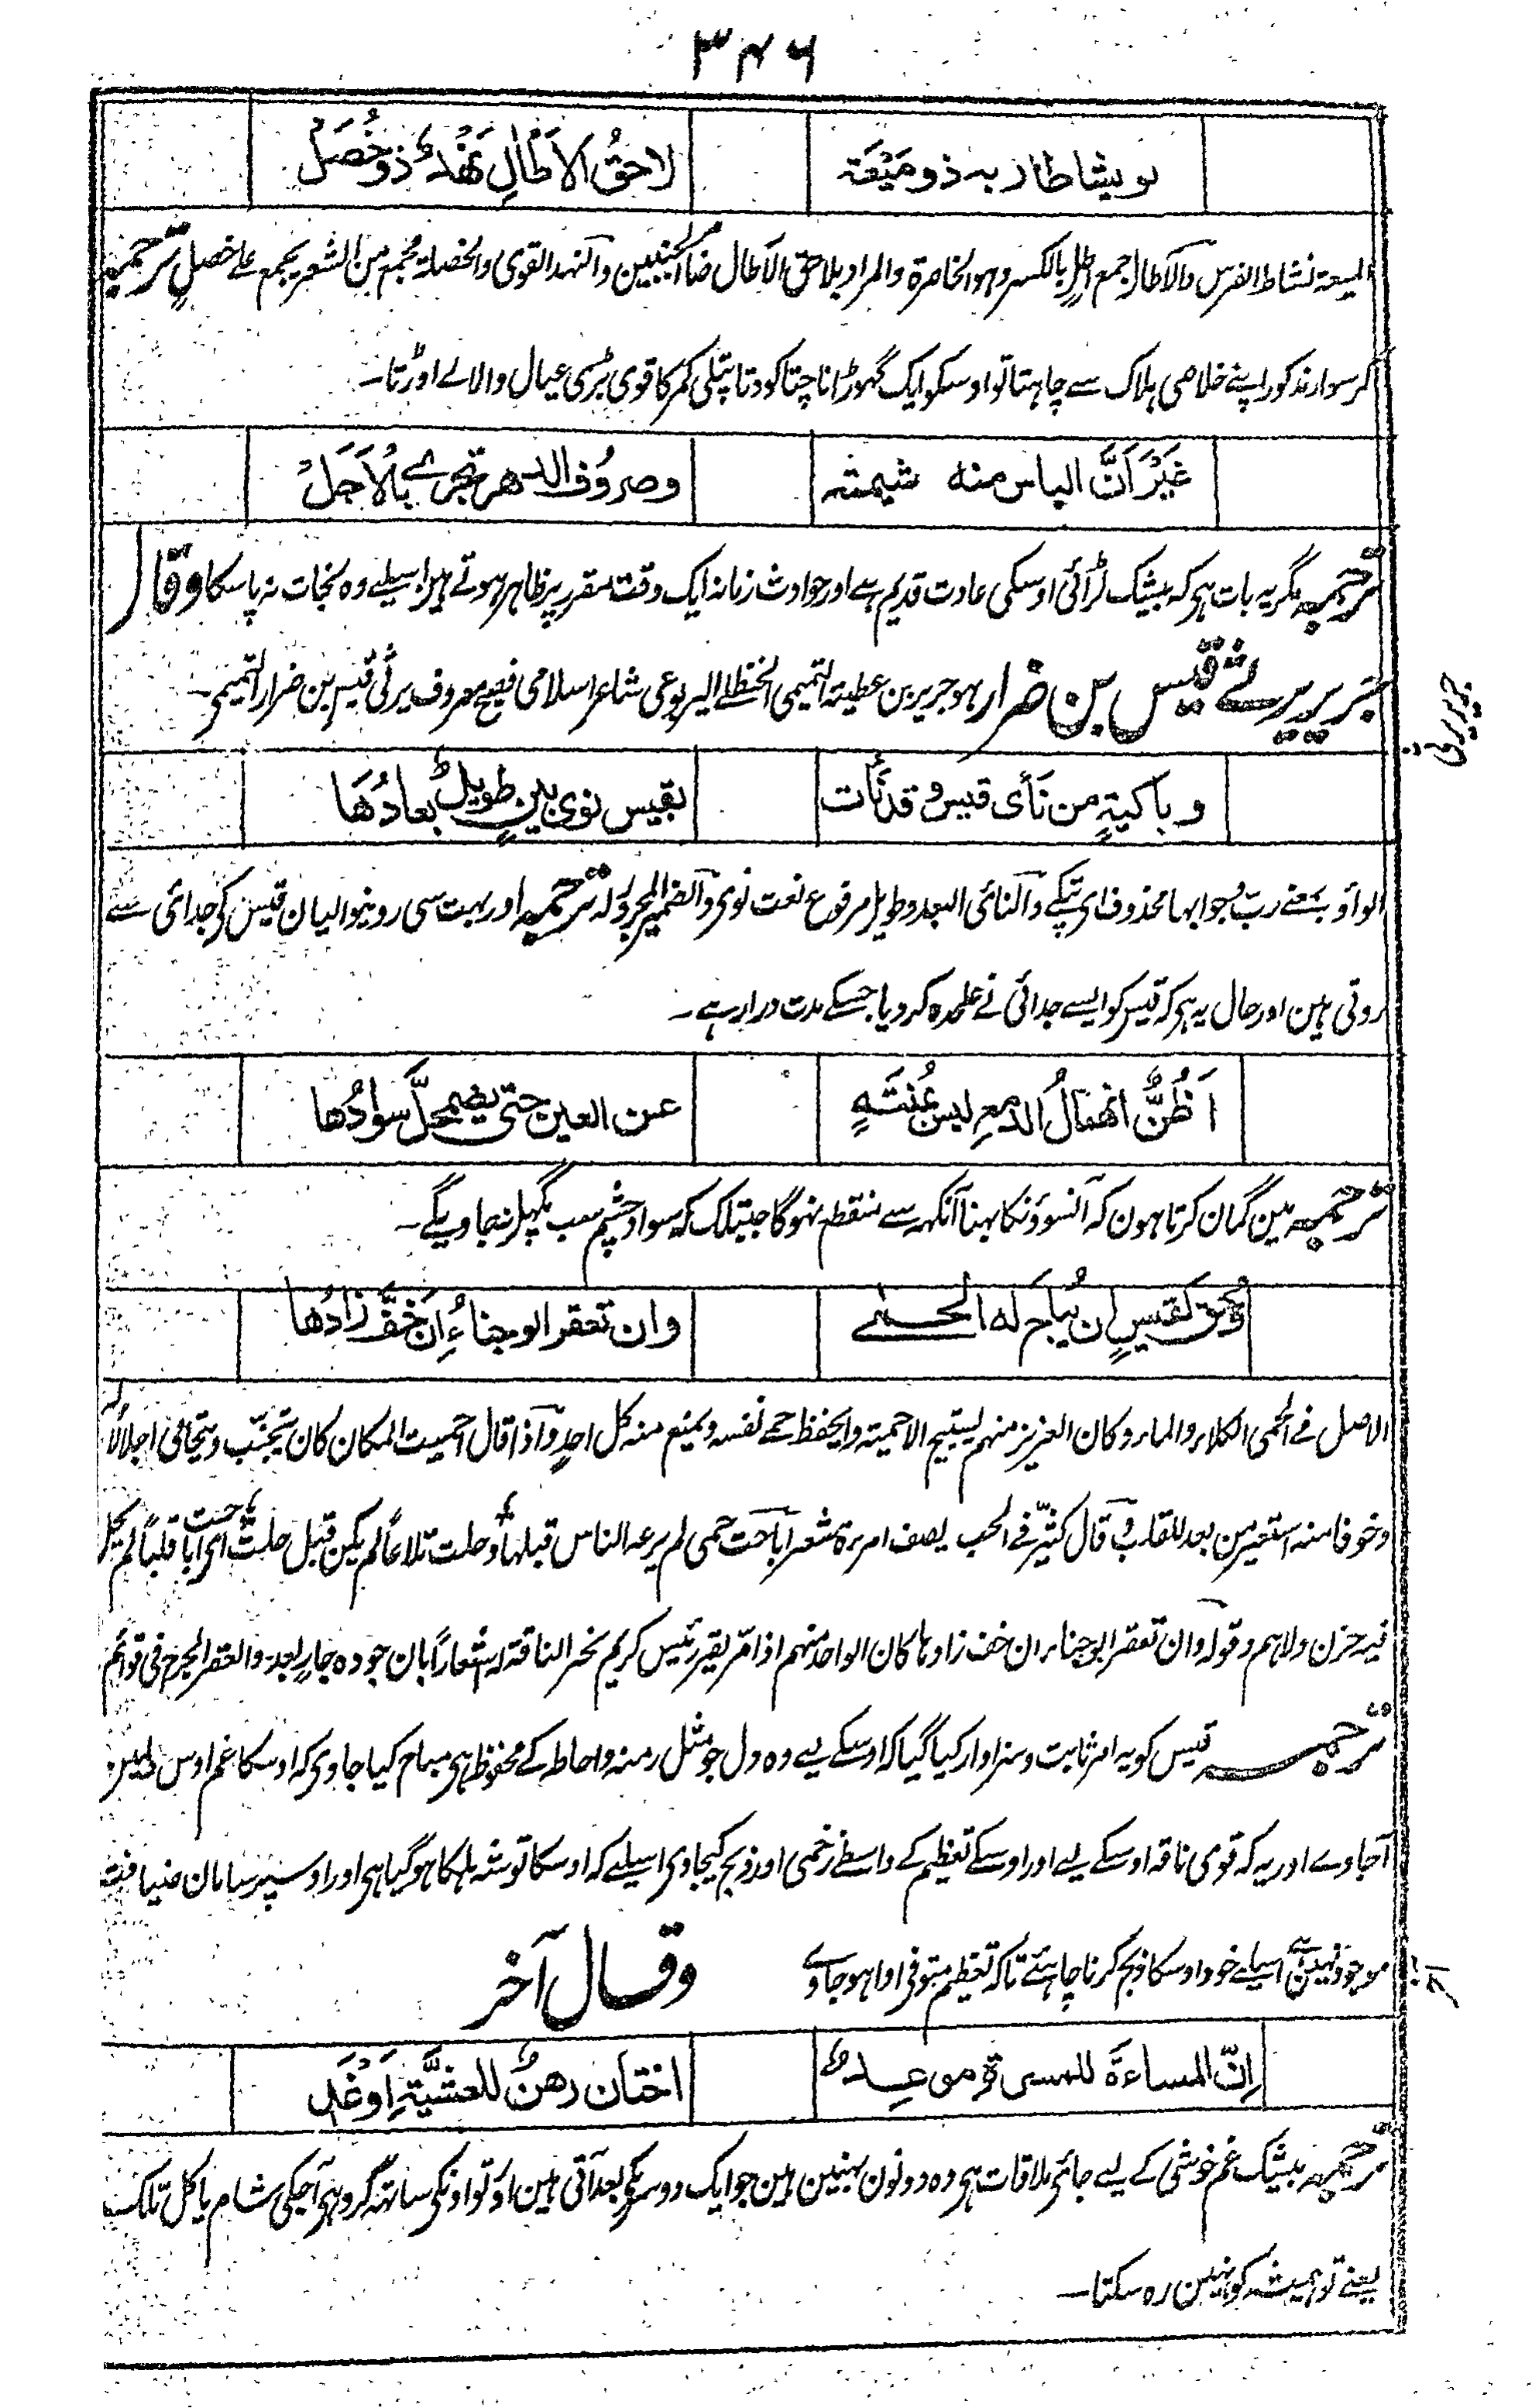 ۳۴۶
لو یشا طار به ذو مَیْعَة لاحقُ الاٰطَالِ نَهْدٌ ذو خُصَلْ
المیعۃ نشاط الفرس والآطال جمع اِطِلٍ بالکسر وہو الخاصرۃ والمراد بلاحق الآطال ضامر الجنبین والنہد القوی والخصلۃ مجمع من الشعر یجمع علے خصلٍ ترجمہ
گر سوار مذکور اپنے خلاصی ہلاک سے چاہتا تو اوسکو ایک گہوڑا ناچتا کودتا پتلی کمر کا قوی بڑی عیال والا لے اوڑتا۔
غَیْرَ اَنَّ الباس منه شیمته وصروُف الدهر تجری بالْاَجَلْ
ترجمہ مگر یہ بات ہی کہ بیشک لڑائی اوسکی عادت قدیم ہے اور حوادث زمانہ ایک وقت مقرر پر ظاہر ہوتے ہین اسیلیے وہ نجات نہ پاسکا وقال
جریر یرثے قیس بن ضرار ہو جریر بن عطیۃ التمیمی الحنظلے الیربوعی شاعر اسلامی فصیح معروف یرثی قیس بن ضرار التمیمی۔
جریر یرثی
وباکیةٍ من نَأی قیسٍ وقد نَأَت بقیس نوی بینٍ طویلٌ بعادُهَا
الواو بمعنے ربّ وجوابہا محذوف ای تبکے والنائی البعد وطویل مرفوع نعت نوی والضمیر المجرور لہ ترجمہ اور بہت سی رونیوالیان قیس کی جدائی سے
روتی ہین اور حال یہ ہی کہ قیس کو ایسے جدائی نے علحدہ کر دیا جسکے مدت دراز ہے۔
اَظُنُّ انهمالَ الدمعِ لیس بمُنْتَهٍ عن العین حتی یضمحلَّ سوادُها
ترجمہ مین گمان کرتا ہون کہ آنسوؤنکا بہنا آنکہہ سے منقطع نہوگا جبتلک کہ سواد چشم سب پگہل نجاویگے۔
وحق لقیسٍ ان یُباحَ له الحمیٰ وان تعقر الوجناءُ اِن خَفَّ زادُها
الاصل فے الحمی الکلاء والماء وکان العزیز منہم یستبیح الاحمیۃ ویحفظ حمے نفسہ ویمنع منہ کل احدٍ واذا قال احمیت المکان کان یتجنّب ویتحامی اجلالاً لہ
وخوفا منہ استعیر من بعد للقلب قال کثیّر فے الحب یصف امرءۃ شعر اباحت حمی لم یرعہ الناس قبلہا وحلت تلاعاً لم یکن قبل حلت ای اباحت قلباً لم یحل
فیہ حزن ولا ہم وقولہ وان تعقر الوجناء ان خف زادہا کان الواحد منہم اذا مرّ بقبر رئیس کریم نحر الناقۃ اشعاراً بان جودہ جارٍ بعد والعقر الجرح فی قوائم
ترجمہ قیس کو یہ امر ثابت وسزاوار کیا گیا کہ اوسکے لیے وہ دل جو مثل رمنہ واحاطہ کے محفوظ ہی مباح کیا جاوی کہ اوسکا غم اوس دلمین
آجاوے اور یہ کہ قوی ناقہ اوسکے لیے اور اوسکے تعظیم کے واسطے زخمی اور ذبح کیجاوی اسیلیے کہ اوسکا توشہ ہلکا ہوگیا ہی اور اوسپر سامان ضیافت
موجود نہین ہے اسیلیے خود اوسکا ذبح کرنا چاہئے تاکہ تعظیم متوفی ادا ہو جاوے وقال آخر
اِنّ المساءَة للمسرة موعدٌ اختان رهنٌ للعشیَّةِ اَوْغَدِ
ترجمہ بیشک غم خوشی کے لیے جائی ملاقات ہی وہ دونون بہنین ہین جو ایک دوسریکے بعد آتی ہین اور تو اونکی ساتہہ گرو ہی آجکی شام یا کل تلک
یعنے تو ہمیشہ کو نہین رہ سکتا۔